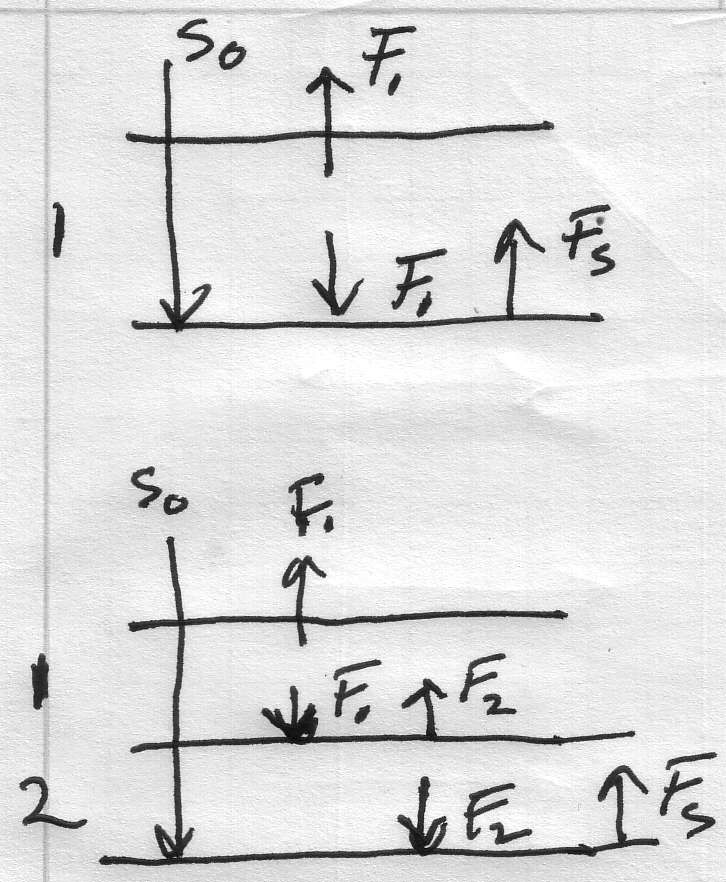 S₀ F₁
1
F₁ F̅s
S₀ F₁
1
F₁ F₂
2
F₂ F̅s